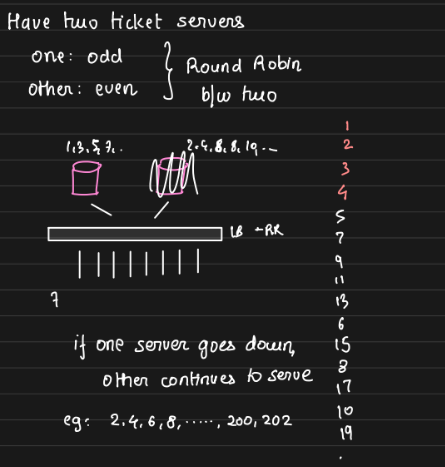 Have two ticket servers
one: odd
other: even
Round Robin
b/w two
1,3,5,7,..
2,4,6,8,
LB -RR
7
if one server goes down,
other continues to serve
eg: 2,4,6,8,....., 200, 202
1
2
3
4
5
7
9
11
13
6
15
8
17
10
19
.